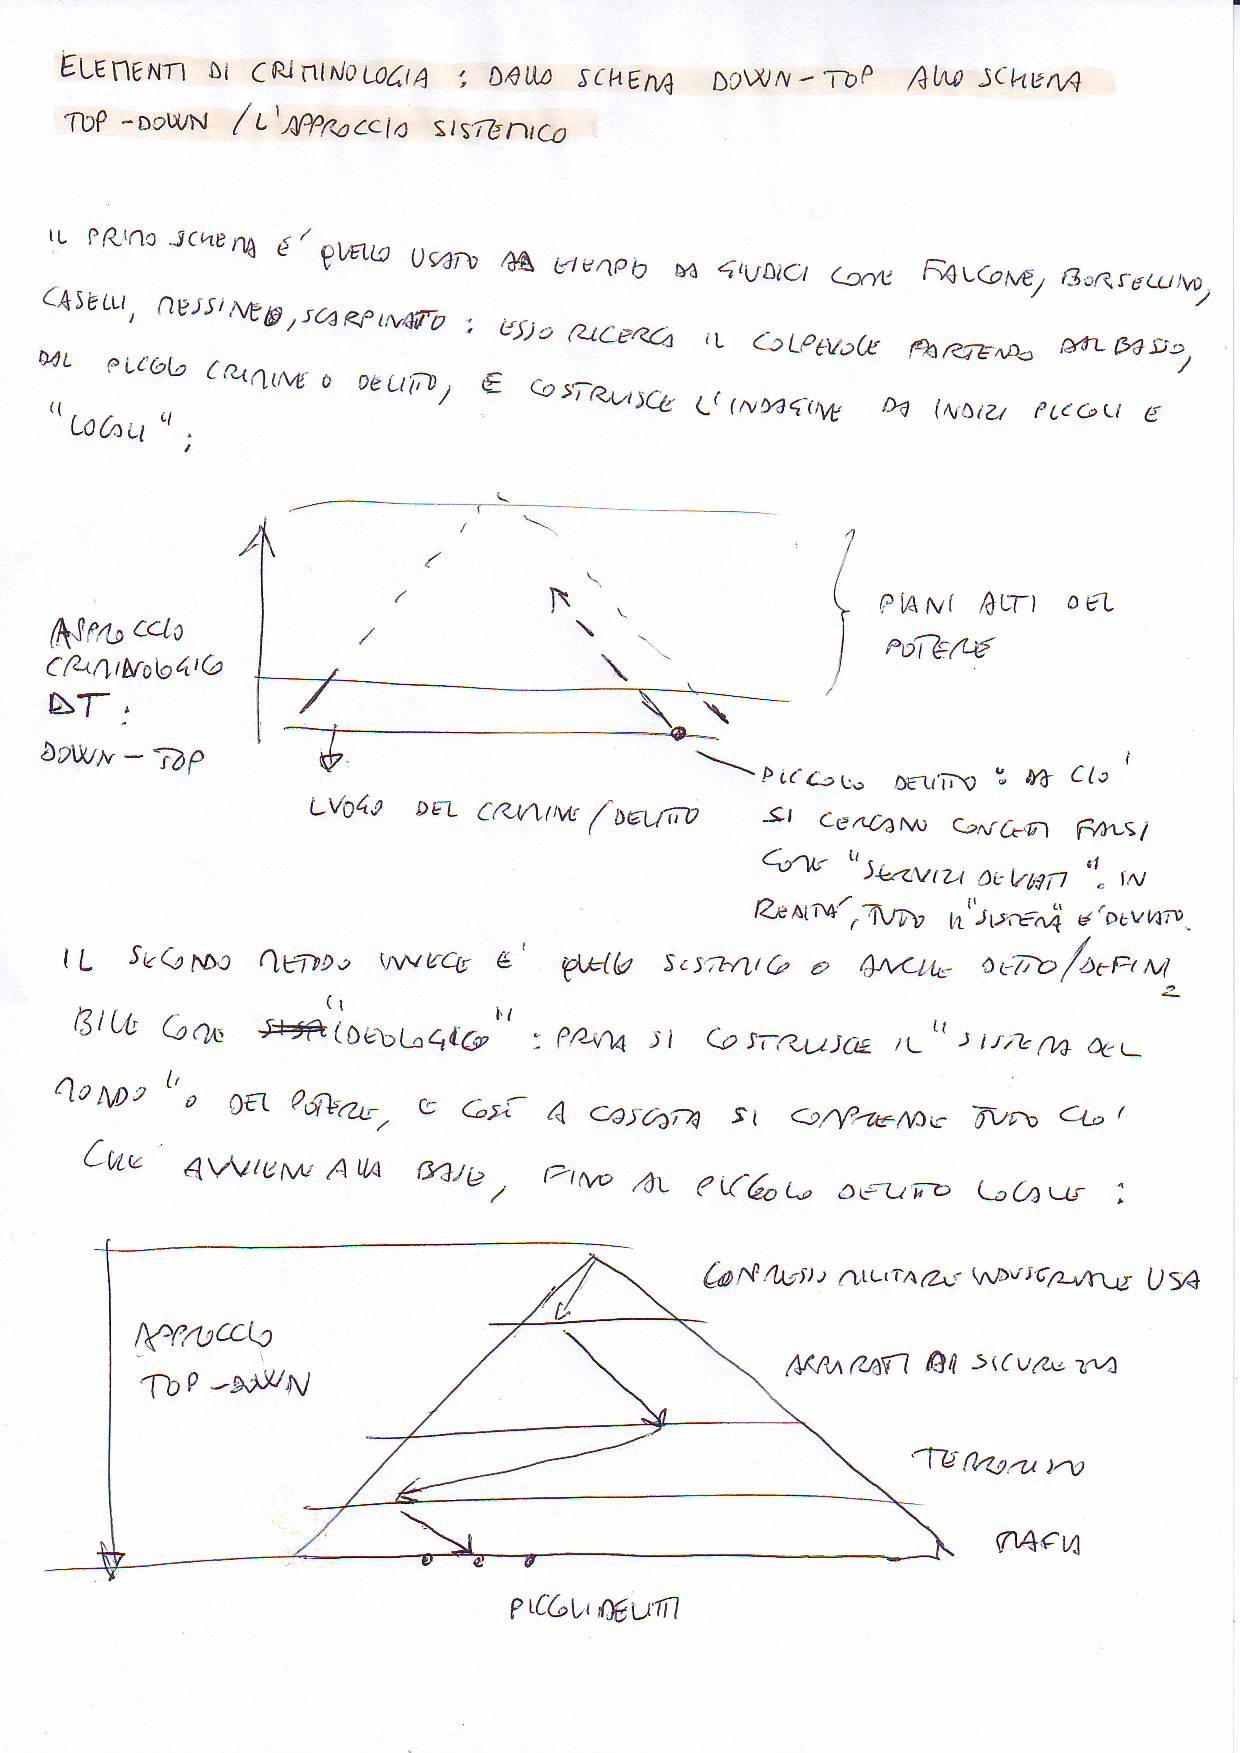 ELEMENTI DI CRIMINOLOGIA : DALLO SCHEMA DOWN-TOP ALLO SCHEMA
TOP-DOWN / L'APPROCCIO SISTEMICO
IL PRIMO SCHEMA E' QUELLO USATO AD ESEMPIO DA GIUDICI COME FALCONE, BORSELLINO,
CASELLI, MESSINEO, SCARPINATO : ESSO RICERCA IL COLPEVOLE PARTENDO DAL BASSO,
DAL PICCOLO CRIMINE O DELITTO, E COSTRUISCE L'INDAGINE DA INDIZI PICCOLI E
"LOCALI" ;
PIANI ALTI DEL
POTERE
APPROCCIO
CRIMINOLOGICO
DT :
DOWN-TOP
LUOGO DEL CRIMINE/DELITTO
PICCOLO DELITTO : DA CIO'
SI CERCANO CONCETTI FALSI
COME "SERVIZI DEVIATI". IN
REALTA', TUTTO IL "SISTEMA" E' DEVIATO.
IL SECONDO METODO INVECE E' QUELLO SISTEMICO O ANCHE DETTO/DEFINI
BILE COME "IDEOLOGICO" : PRIMA SI COSTRUISCE IL "SISTEMA DEL
MONDO" O DEL POTERE, E COSÌ A CASCATA SI COMPRENDE TUTTO CIO'
CHE AVVIENE ALLA BASE, FINO AL PICCOLO DELITTO LOCALE :
COMPLESSO MILITARE INDUSTRIALE USA
APPROCCIO
TOP-DOWN
APPARATI DI SICUREZZA
TERRORISMO
MAFIA
PICCOLI DELITTI